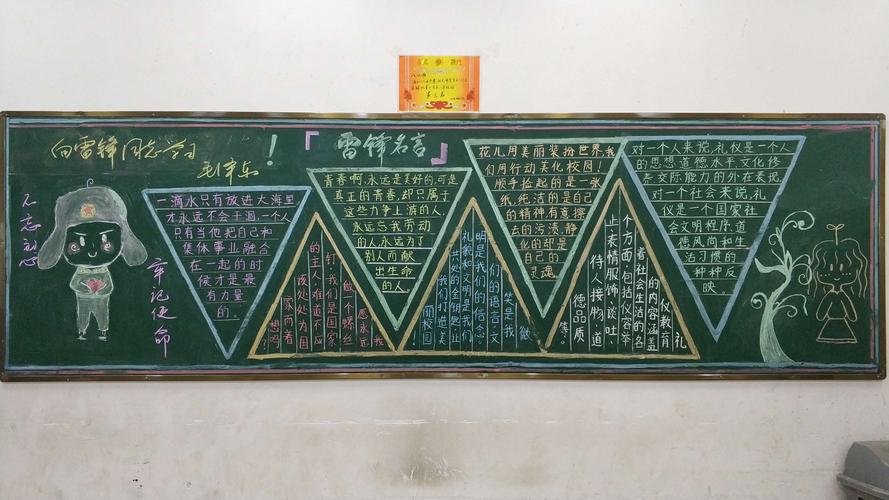 向雷锋同志学习!
毛泽东
『雷锋名言』
不忘初心
牢记使命
一滴水只有放进大海里
才永远不会干涸,一个人
只有当他把自己和
集体事业融合
在一起的时
候才是最
有力量
的。
我
愿永远
做一个螺丝
钉!我们是国家
的主人,难道不应
该处处为国
家而着
想吗?
青春啊,永远是美好的,可是
真正的青春,却只属于
这些力争上游的人,
永远忘我劳动
的人,永远为了
别人而献
出生命
的人。
微
笑是我
们的语言,文
明是我们的信念,
礼貌和文明是我们
共处的金钥匙,让
我们打造美
校园!
花儿用美丽装扮世界,我
们用行动美化校园!
顺手捡起的是一张
纸,纯洁的是自己
的精神,有意擦
去的污渍,静
化的却是
自己的
灵魂。
礼
仪教育
的内容涵盖
着社会生活的各
个方面,包括仪容举
止,表情,服饰,谈吐、
待人接物,道
德品质
等。
对一个人来说,礼仪是一个人
的思想道德水平,文化修
养,交际能力的外在表现,
对一个社会来说,礼
仪是一个国家社
会文明程序,道
德风尚和生
活习惯的
种种反
映。